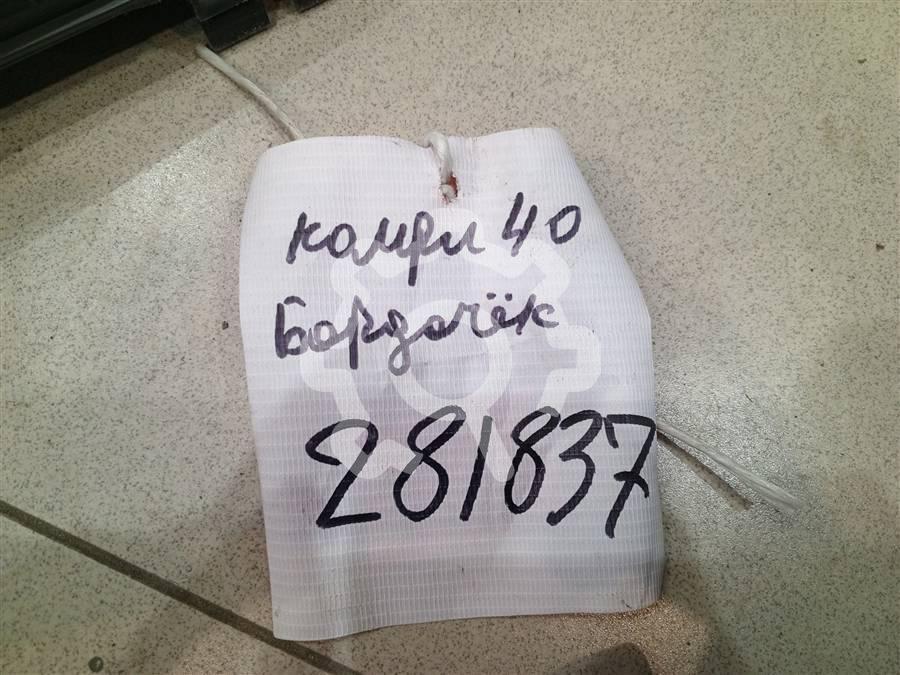 камри 40
Бардачёк
281837